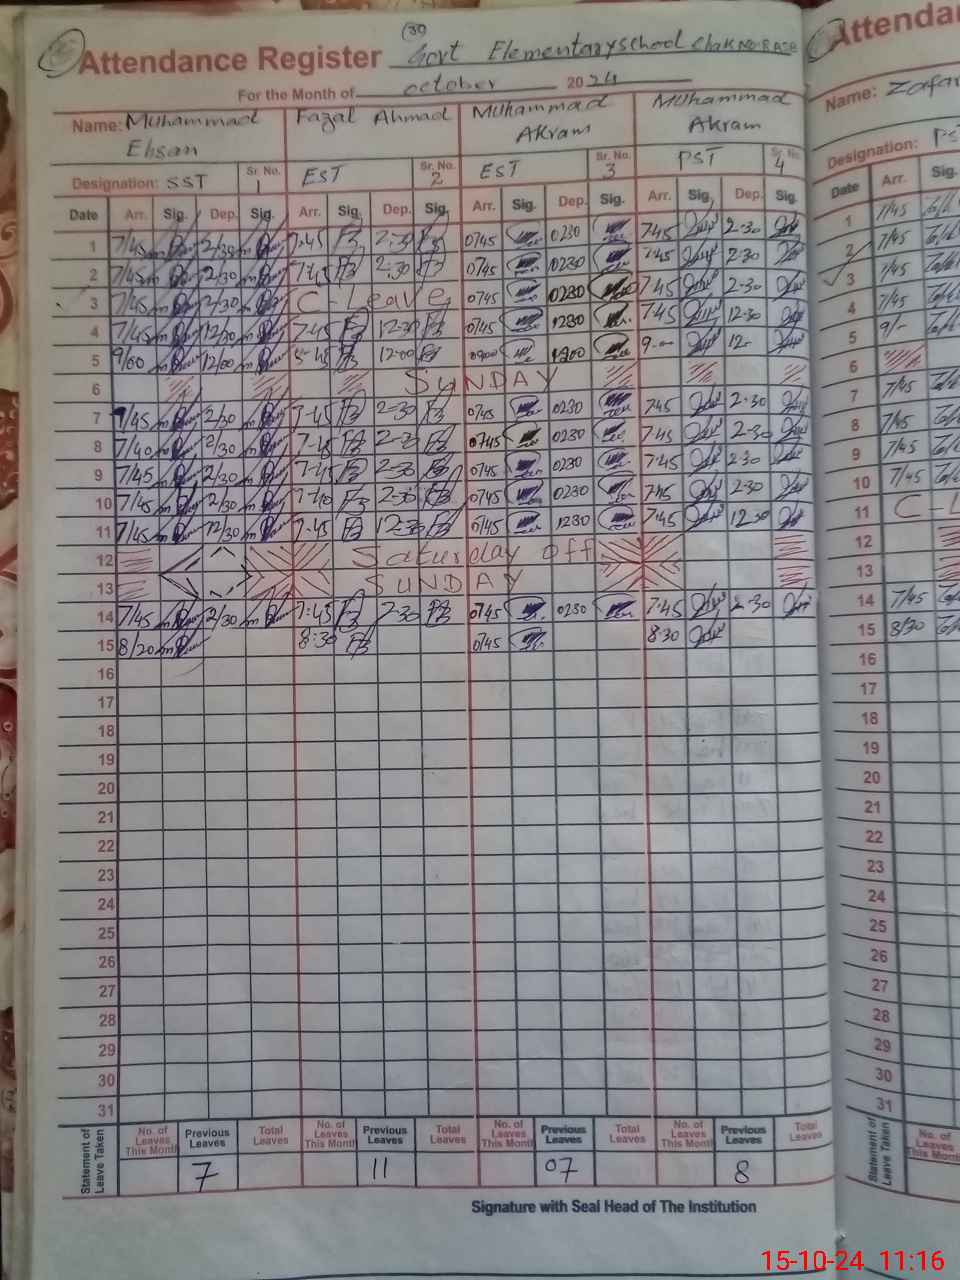 (39)
Attendance Register Govt Elementaryschool Chak No
For the Month of october 2024
Name: Muhammad Ehsan Fazal Ahmad Muhammad Akram Muhammad Akram
Designation: SST Sr. No. 1 EST Sr. No. 2 EST Sr. No. 3 PST Sr. No. 4
Date Arr. Sig. Dep. Sig. Arr. Sig. Dep. Sig. Arr. Sig. Dep. Sig. Arr. Sig. Dep. Sig.
1 7/45 2/30 7-45 2-30 0745 0230 7-45 2-30
2 7/45 2/30 7-45 2-30 0745 0230 7-45 2-30
3 7/45 2/30 C-Leave 0745 0230 7-45 2-30
4 7/45 12/30 7-45 12-30 0745 1230 7-45 12-30
5 9/00 12/00 12-00 0900 1200 9-00 12-
6 SUNDAY
7 7/45 2/30 7-45 2-30 0745 0230 7-45 2-30
8 7/40 2/30 7-45 2-30 0745 0230 7-45 2-30
9 7/45 2/30 7-45 2-30 0745 0230 7-45 2-30
10 7/45 2/30 7-40 2-30 0745 0230 7-45 2-30
11 7/45 12/30 7-45 12-30 0745 1230 7-45 12-30
12 Saturday off
13 SUNDAY
14 7/45 2/30 7-45 2-30 0745 0230 7-45 2-30
15 8/20 8:30 0745 8-30
16
17
18
19
20
21
22
23
24
25
26
27
28
29
30
31
Statement of Leave Taken
No. of Leaves This Month Previous Leaves Total Leaves No. of Leaves This Month Previous Leaves Total Leaves No. of Leaves This Month Previous Leaves Total Leaves No. of Leaves This Month Previous Leaves Total Leaves
7 11 07 8
Signature with Seal Head of The Institution
Name: Zafar
Designation:
Date Arr. Sig.
1 7/45
2 7/45
3 7/45
4 7/45
5 9/-
6
7 7/45
8 7/45
9 7/45
10 7/45
11
12
13
14 7/45
15 8/30
16
17
18
19
20
21
22
23
24
25
26
27
28
29
30
31
Statement of Leave Taken
No. of Leaves This Month
15-10-24 11:16